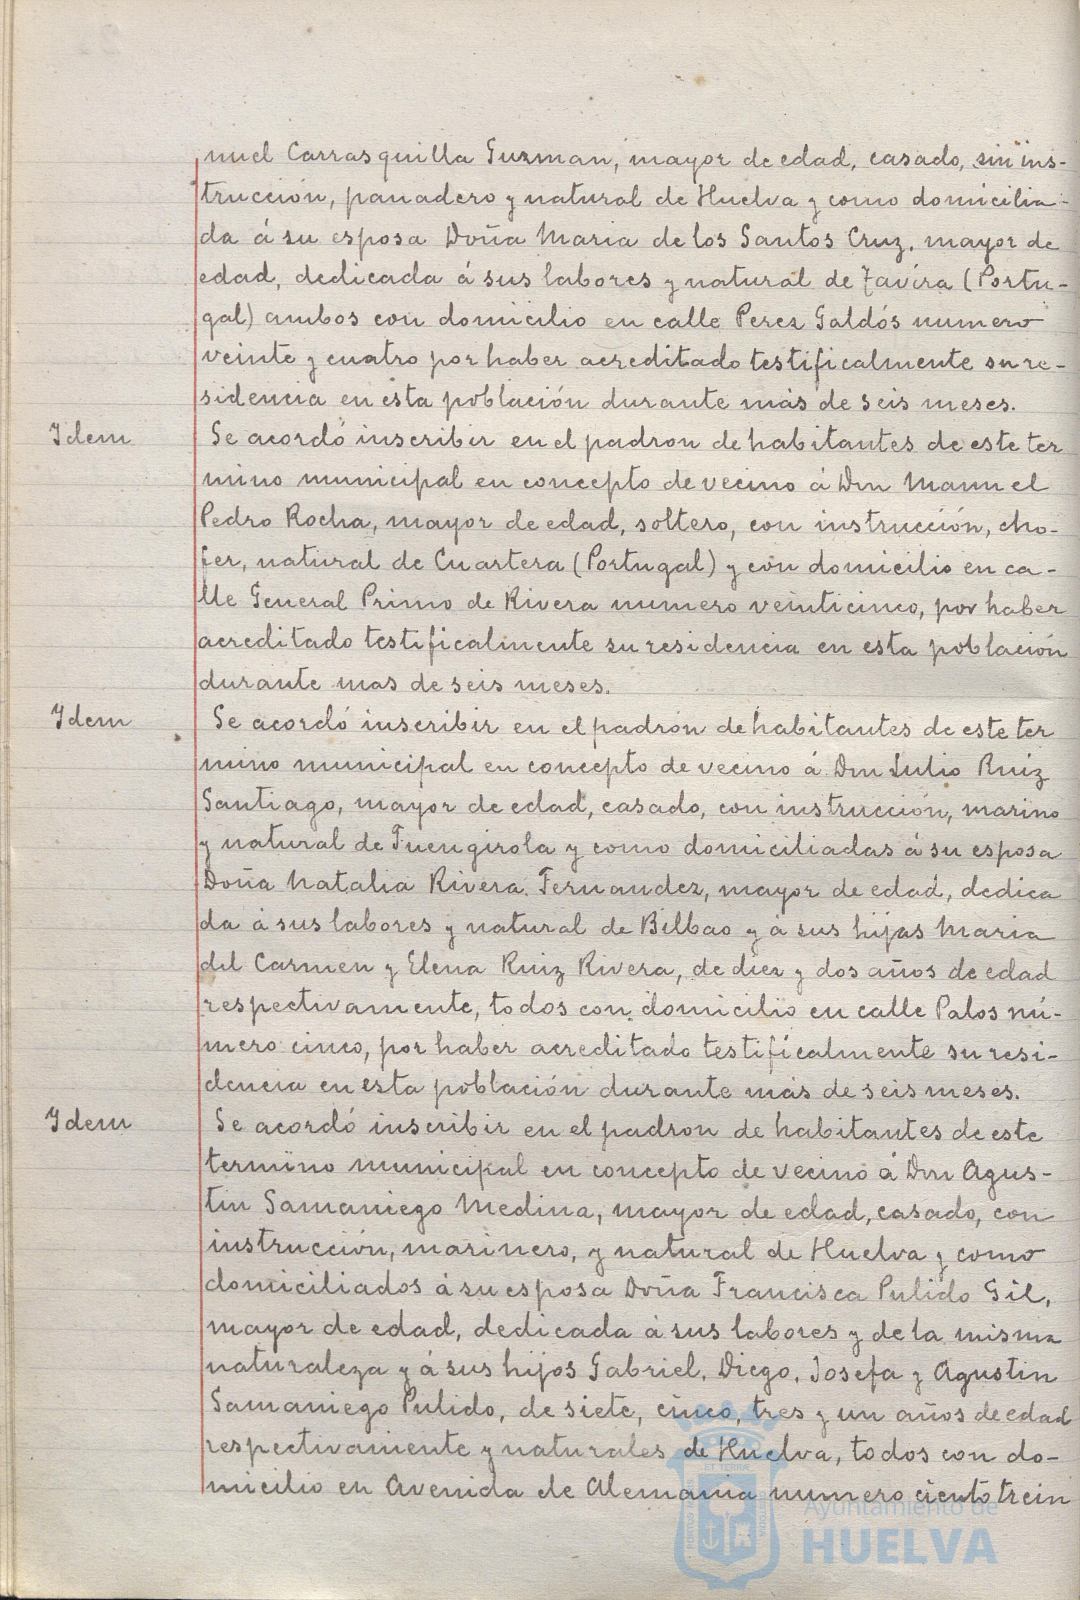 nuel Carrasquilla Guzman, mayor de edad, casado, sin ins-
trucción, panadero y natural de Huelva y como domicilia-
da á su esposa Doña Maria de los Santos Cruz, mayor de
edad, dedicada á sus labores y natural de Tavira (Portu-
gal) ambos con domicilio en calle Perez Galdós numero
veinte y cuatro por haber acreditado testificalmente su re-
sidencia en esta población durante más de seis meses.
Idem
Se acordó inscribir en el padron de habitantes de este ter
mino municipal en concepto de vecino á Don Manuel
Pedro Rocha, mayor de edad, soltero, con instrucción, cho-
fer, natural de Cuartera (Portugal) y con domicilio en ca-
lle General Primo de Rivera numero veinticinco, por haber
acreditado testificalmente su residencia en esta población
durante mas de seis meses.
Idem
Se acordó inscribir en el padrón de habitantes de este ter
mino municipal en concepto de vecino á Don Julio Ruiz
Santiago, mayor de edad, casado, con instrucción, marino
y natural de Fuengirola y como domiciliadas á su esposa
Doña Natalia Rivera Fernandez, mayor de edad, dedica
da á sus labores y natural de Bilbao y á sus hijas Maria
del Carmen y Elena Ruiz Rivera, de diez y dos años de edad
respectivamente, todos con domicilio en calle Palos nú-
mero cinco, por haber acreditado testificalmente su resi-
dencia en esta población durante más de seis meses.
Idem
Se acordó inscribir en el padron de habitantes de este
termino municipal en concepto de vecino á Don Agus-
tin Samaniego Medina, mayor de edad, casado, con
instrucción, marinero, y natural de Huelva y como
domiciliados á su esposa Doña Francisca Pulido Gil,
mayor de edad, dedicada á sus labores y de la misma
naturaleza y á sus hijos Gabriel, Diego, Josefa y Agustin
Samaniego Pulido, de siete, cinco, tres y un años de edad
respectivamente y naturales de Huelva, todos con do-
micilio en Avenida de Alemania numero ciento trein
Ayuntamiento de
HUELVA